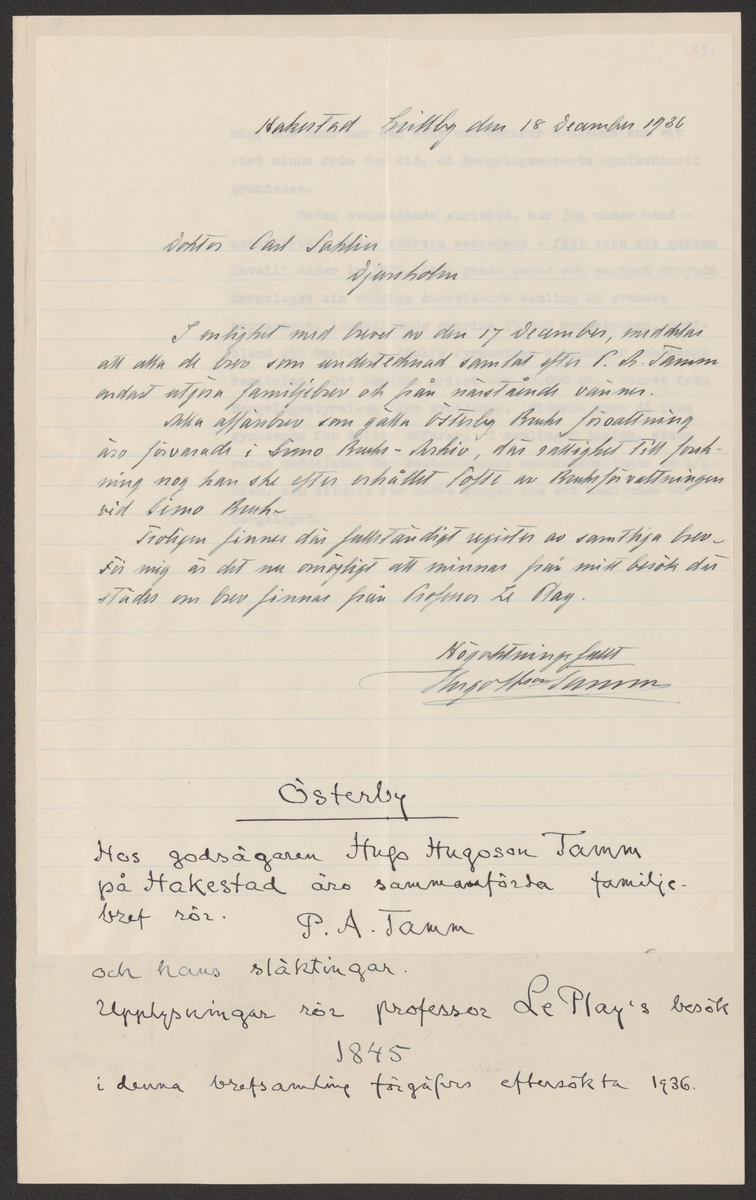 Hakestad Grillby den 18 December 1936
Doktor Carl Sahlin
Djursholm
I enlighet med brevet av den 17 December, meddelas
att alla de brev som undertecknad samlat efter P. A. Tamm
endast utgöra familjebrev och från närstående vänner.
Alla affärsbrev som gälla Österby Bruks förvaltning
äro förvarade i Gimo Bruks-Arkiv, där rättighet till forsk-
ning nog kan ske efter erhållet löfte av Bruksförvaltningen
vid Gimo Bruk-
Troligen finnes där fullständigt register av samtliga brev-
För mig är det nu omöjligt att minnas från mitt besök där
städes om brev finnas från Professor Le Play.
Högaktningsfullt
Hugo Hson Tamm
Österby
Hos godsägaren Hugo Hugoson Tamm
på Hakestad äro sammanförda familje-
bref rör. P. A. Tamm
och hans släktingar.
Upplysningar rör professor Le Play's besök
1845
i denna brefsamling förgäfves eftersökta 1936.